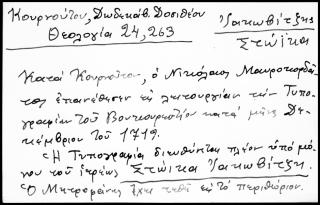 Κουρνούτου, Δωδεκάβ. Δοσιθέου
Θεολογία 24, 263
Ἰακωβίτζης
Στώϊκα
Κατὰ Κουρνοῦτον, ὁ Νικόλαος Μαυροκορδᾶ-
τος ἐπανέθεσεν εἰς λειτουργίαν τὴν Τυπο-
γραφίαν τοῦ Βουκουρεστίου κατὰ μῆνα Δε-
κέμβριον τοῦ 1719.
Ἡ Τυπογραφία διευθύνεται πλέον ὑπὸ μό-
νου τοῦ ἱερέως Στώϊκα Ἰακωβίτζη.
Ὁ Μητροφάνης ἔχει τεθῆ εἰς τὸ περιθώριον.